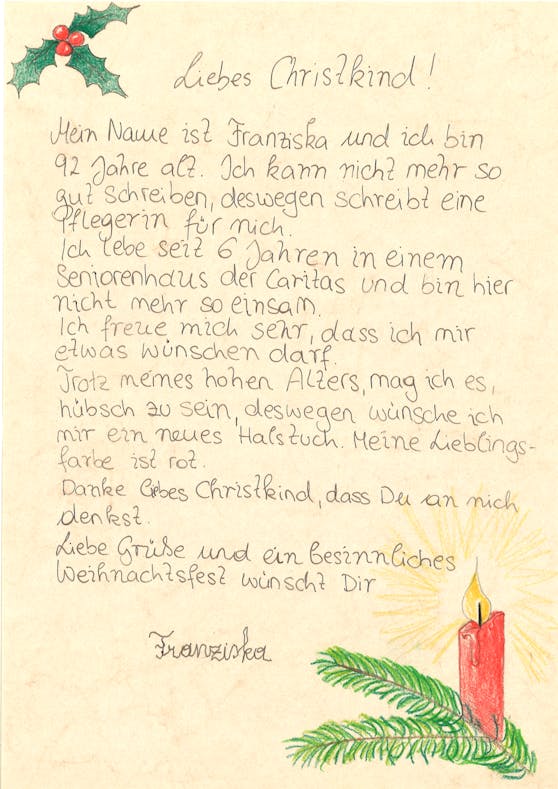 Liebes Christkind!
Mein Name ist Franziska und ich bin
92 Jahre alt. Ich kann nicht mehr so
gut schreiben, deswegen schreibt eine
Pflegerin für mich.
Ich lebe seit 6 Jahren in einem
Seniorenhaus der Caritas und bin hier
nicht mehr so einsam.
Ich freue mich sehr, dass ich mir
etwas wünschen darf.
Trotz meines hohen Alters, mag ich es,
hübsch zu sein, deswegen wünsche ich
mir ein neues Halstuch. Meine Lieblings-
farbe ist rot.
Danke liebes Christkind, dass Du an mich
denkst.
Liebe Grüße und ein besinnliches
Weihnachtsfest wünscht Dir
Franziska